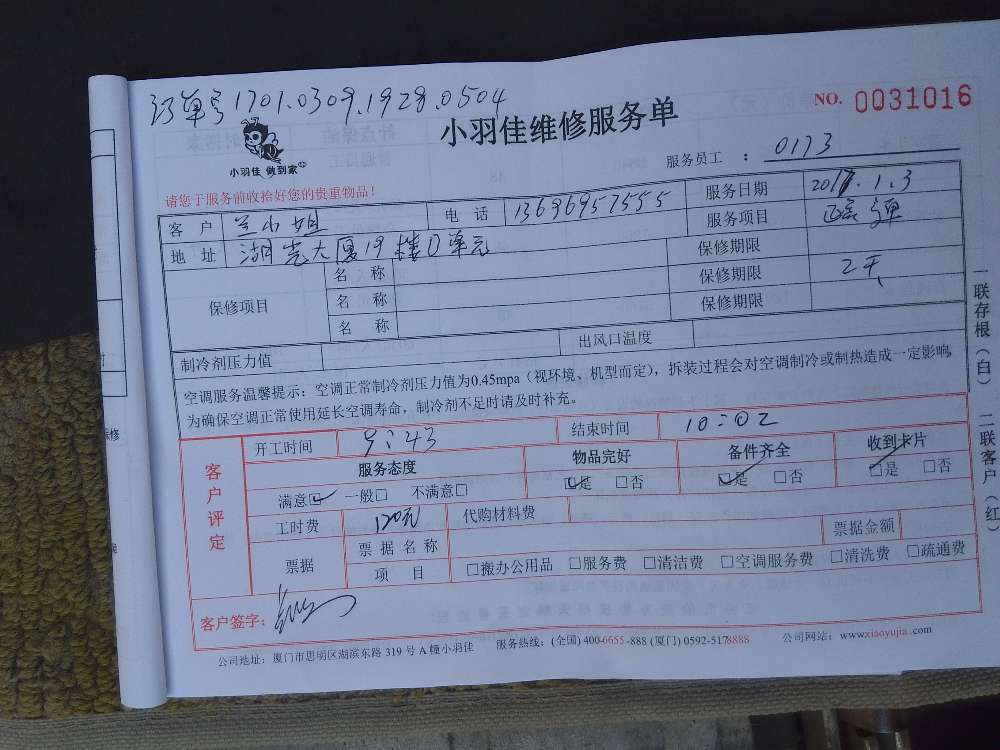 订单号 1701.0309.1928.0504
小羽佳维修服务单
NO. 0031016
小羽佳 做到家
服务员工 : 0173
请您于服务前收拾好您的贵重物品!
客户 兰小姐 电话 13696957555 服务日期 2017.1.3
地址 湖光大厦19楼D单元 服务项目
保修项目 名称 保修期限
名称 保修期限 2天
名称 保修期限
制冷剂压力值 出风口温度
空调服务温馨提示:空调正常制冷剂压力值为0.45mpa(视环境、机型而定),拆装过程会对空调制冷或制热造成一定影响,
为确保空调正常使用延长空调寿命,制冷剂不足时请及时补充。
客户评定
开工时间 9:43 结束时间 10:02
服务态度 物品完好 备件齐全 收到卡片
满意☑ 一般□ 不满意□ ☑是 □否 ☑是 □否 ☑是 □否
工时费 120元 代购材料费
票据 票据名称 票据金额
项目 □搬办公用品 □服务费 □清洁费 □空调服务费 □清洗费 □疏通费
客户签字:
公司地址:厦门市思明区湖滨东路319号A幢小羽佳 服务热线:(全国)400-6655-888 (厦门)0592-5178888 公司网站:www.xiaoyujia.com
一联存根(白) 二联客户(红)